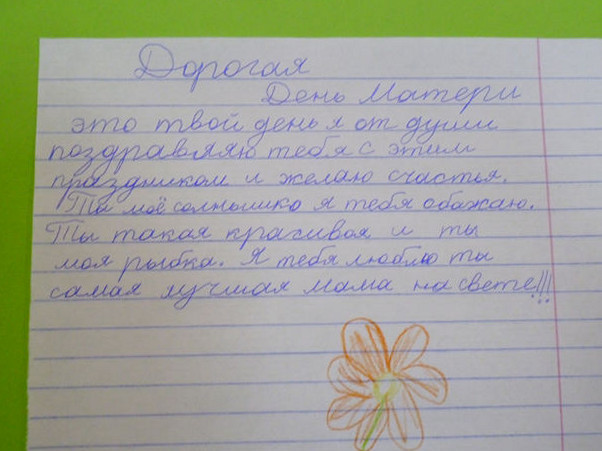 Дорогая
День Матери
это твой день я от души
поздравляю тебя с этим
праздником и желаю счастья.
Ты моё солнышко я тебя обажаю.
Ты такая красивая и ты
моя рыбка. Я тебя люблю ты
самая лучшая мама на свете!!!